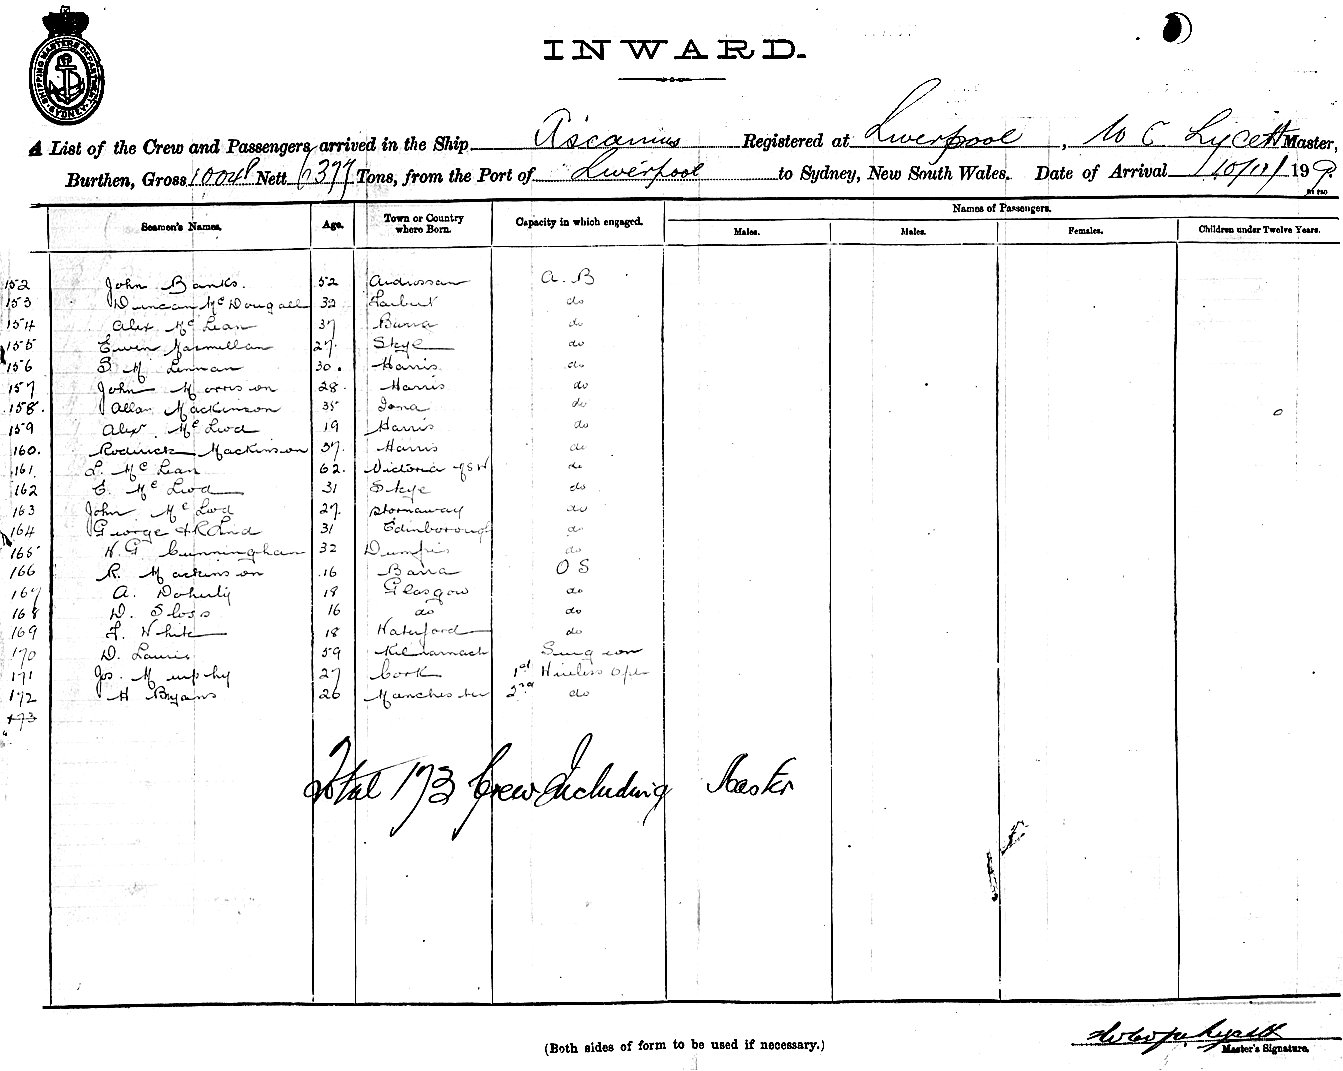 SHIPPING MASTERS DEPARTMENT SYDNEY
INWARD.
A List of the Crew and Passengers arrived in the Ship Ascanius Registered at Liverpool, W C Lycett Master,
Burthen, Gross 10048 Nett 6377 Tons, from the Port of Liverpool to Sydney, New South Wales. Date of Arrival 10/11/ 19
Names of Passengers.
Seamen's Names. Age. Town or Country where Born. Capacity in which engaged. Males. Males. Females. Children under Twelve Years.
152 John Banks. 52 Ardrossan A.B
153 Duncan McDougall 32 Larbert do
154 Alex McLean 37 Barra do
155 Ewen Macmillan 27. Skye do
156 S M Lennan 30. Harris do
157 John Morrison 28. Harris do
158. Allan Mackinson 35 Iona do
159 Alex McLeod 19 Harris do
160. Roderick Mackinson 37. Harris do
161. L. McLean 62. Victoria do
162 E. McLeod 31 Skye do
163 John McLeod 27. Stornaway do
164 George 31 Edinborough do
165 H. G Cunningham 32 Dumfris do
166 R. Mackinson 16 Barra O S
167 A. Doherty 18 Glasgow do
168 D. Sloss 16 do do
169 J. White 18 Waterford do
170 D. Laurie 59 Kilmarnock Surgeon
171 Jos. Murphy 27 Cork 1st Wireless Opr
172 H Bryans 26 Manchester 2nd do
173
Total 173 Crew Including Master
(Both sides of form to be used if necessary.)
Master's Signature.